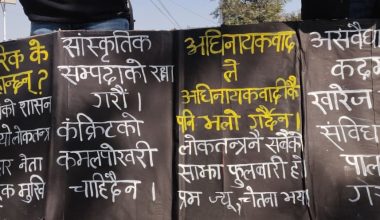 रिक के
छन् ?
को शासन
यो लोकतन्त्र
नेता
मुखि
सांस्कृतिक
सम्पदाको रक्षा
गरौं।
कंक्रिटको
कमलपोखरी
चाहिदैन।
अधिनायकवाद
ले
अधिनायकवादीकै
पनि भलो गर्दैन।
लोकतन्त्रनै सबैको
साझा फुलवारी हो
प्रम ज्यू, चेतना भया
असंवैधा
कदम
खारेज
संविध
पाल
ग